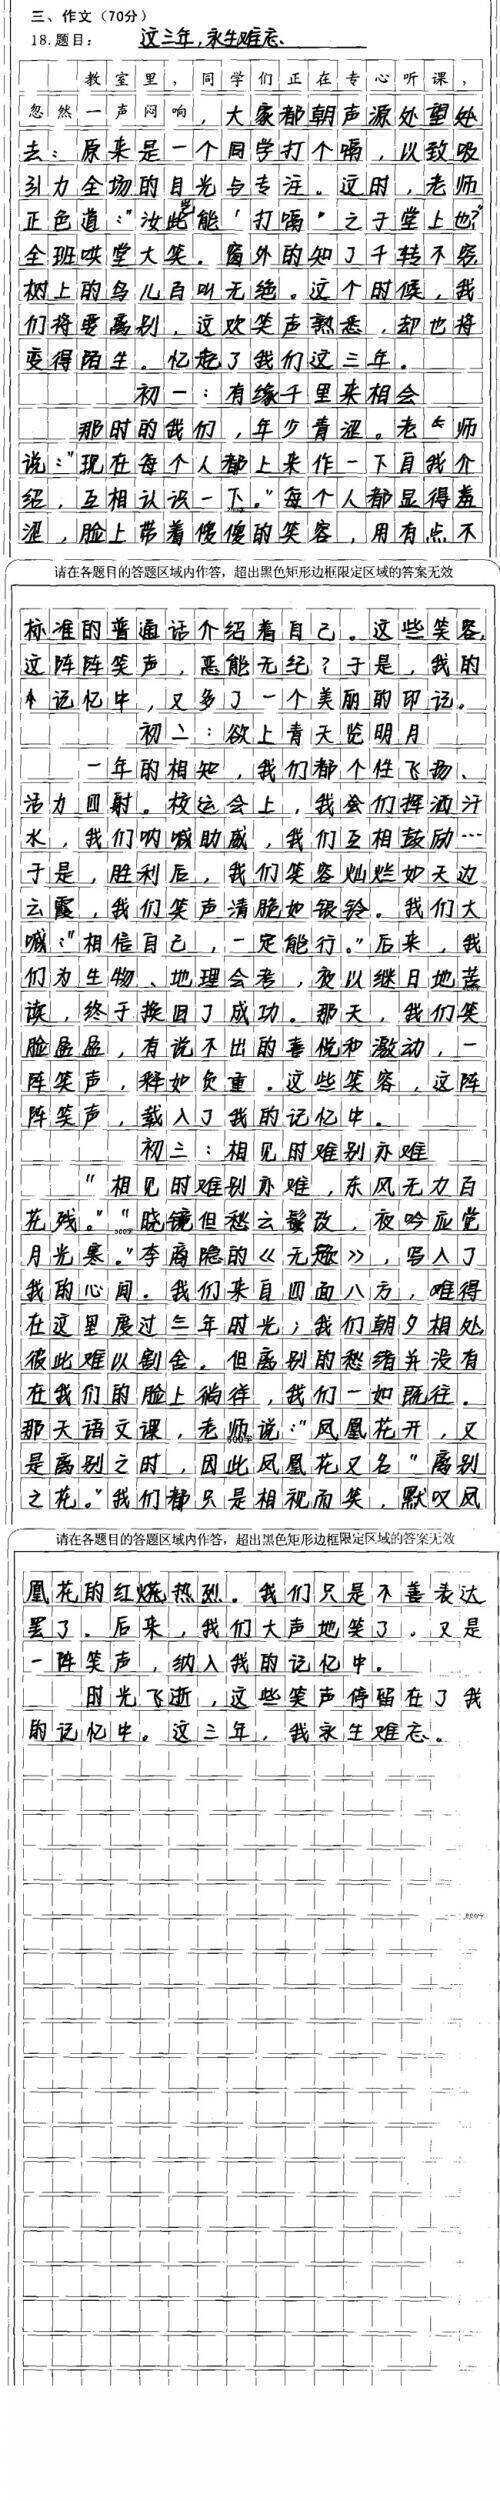 三、作文（70分）
18.题目：这三年,永生难忘、
教室里，同学们正在专心听课，
忽然一声闷响，大家都朝声源处望处
去：原来是一个同学打个嗝，以致吸
引力全场的目光与专注。这时，老师
正色道："汝此岂能'打嗝"之于堂上也?"
全班哄堂大笑。窗外的知了千转不穷
树上的鸟儿百叫无绝。这个时候，我
们将要离别，这欢笑声熟悉，却也将
变得陌生。忆起了我们这三年。
初一：有缘千里来相会
那时的我们，年少青涩。老师
说："现在每个人都上来作一下自我介
绍，互相认识一下。"每个人都显得羞
涩，脸上带着傻傻的笑容，用有点不
请在各题目的答题区域内作答，超出黑色矩形边框限定区域的答案无效
标准的普通话介绍着自己。这些笑容,
这阵阵笑声，恶能无纪？于是，我的
记忆中，又多了一个美丽的印记。
初二：欲上青天览明月
一年的相知，我们都个性飞扬、
活力四射。校运会上，我会们挥洒汗
水，我们呐喊助威，我们互相鼓励…
于是，胜利后，我们笑容灿烂如天边
云霞，我们笑声清脆如银铃。我们大
喊："相信自己，一定能行。"后来，我
们为生物、地理会考，夜以继日地苦
读，终于换回了成功。那天，我们笑
脸盈盈，有说不出的喜悦和激动，一
阵笑声，释如负重。这些笑容，这阵
阵笑声，载入了我的记忆中。
初三：相见时难别亦难
"相见时难别亦难，东风无力百
花残。""晓镜但愁云鬓改，夜吟应觉
月光寒。"李商隐的《无题》，写入了
我的心间。我们来自四面八方，唯得
在这里度过三年时光；我们朝夕相处
彼此难以割舍。但离别的愁绪并没有
在我们的脸上徜徉，我们一如既往。
那天语文课，老师说："凤凰花开，又
是离别之时，因此凤凰花又名"离别
之花。"我们都只是相视而笑，默叹凤
请在各题目的答题区域内作答，超出黑色矩形边框限定区域的答案无效
凰花的红烧热烈。我们只是不善表达
罢了。后来，我们大声地笑了，又是
一阵笑声，纳入我的记忆中。
时光飞逝，这些笑声停留在了我
的记忆中。这三年，我永生难忘。